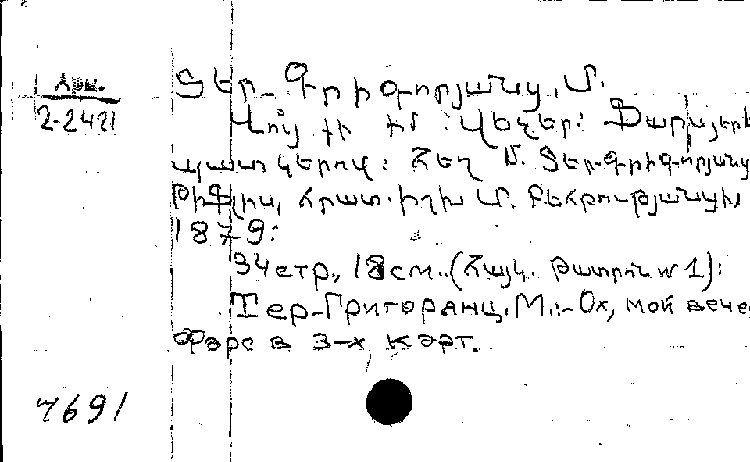 Հրտ.
2-2421
Տեր-Գրիգորյանց, Մ.
իմ վեչեր: Ֆարս, երե
պատկերով: Հեղ Մ. Տեր-Գրիգորյանց
Թիֆլիս, հրատ. Մ.
1879:
34 стр., 18 см. (Հայկ. Թատրոն № 1):
Тер-Григорянц, М.:- Ох, мой вече
Фарс в 3-х карт.
7691